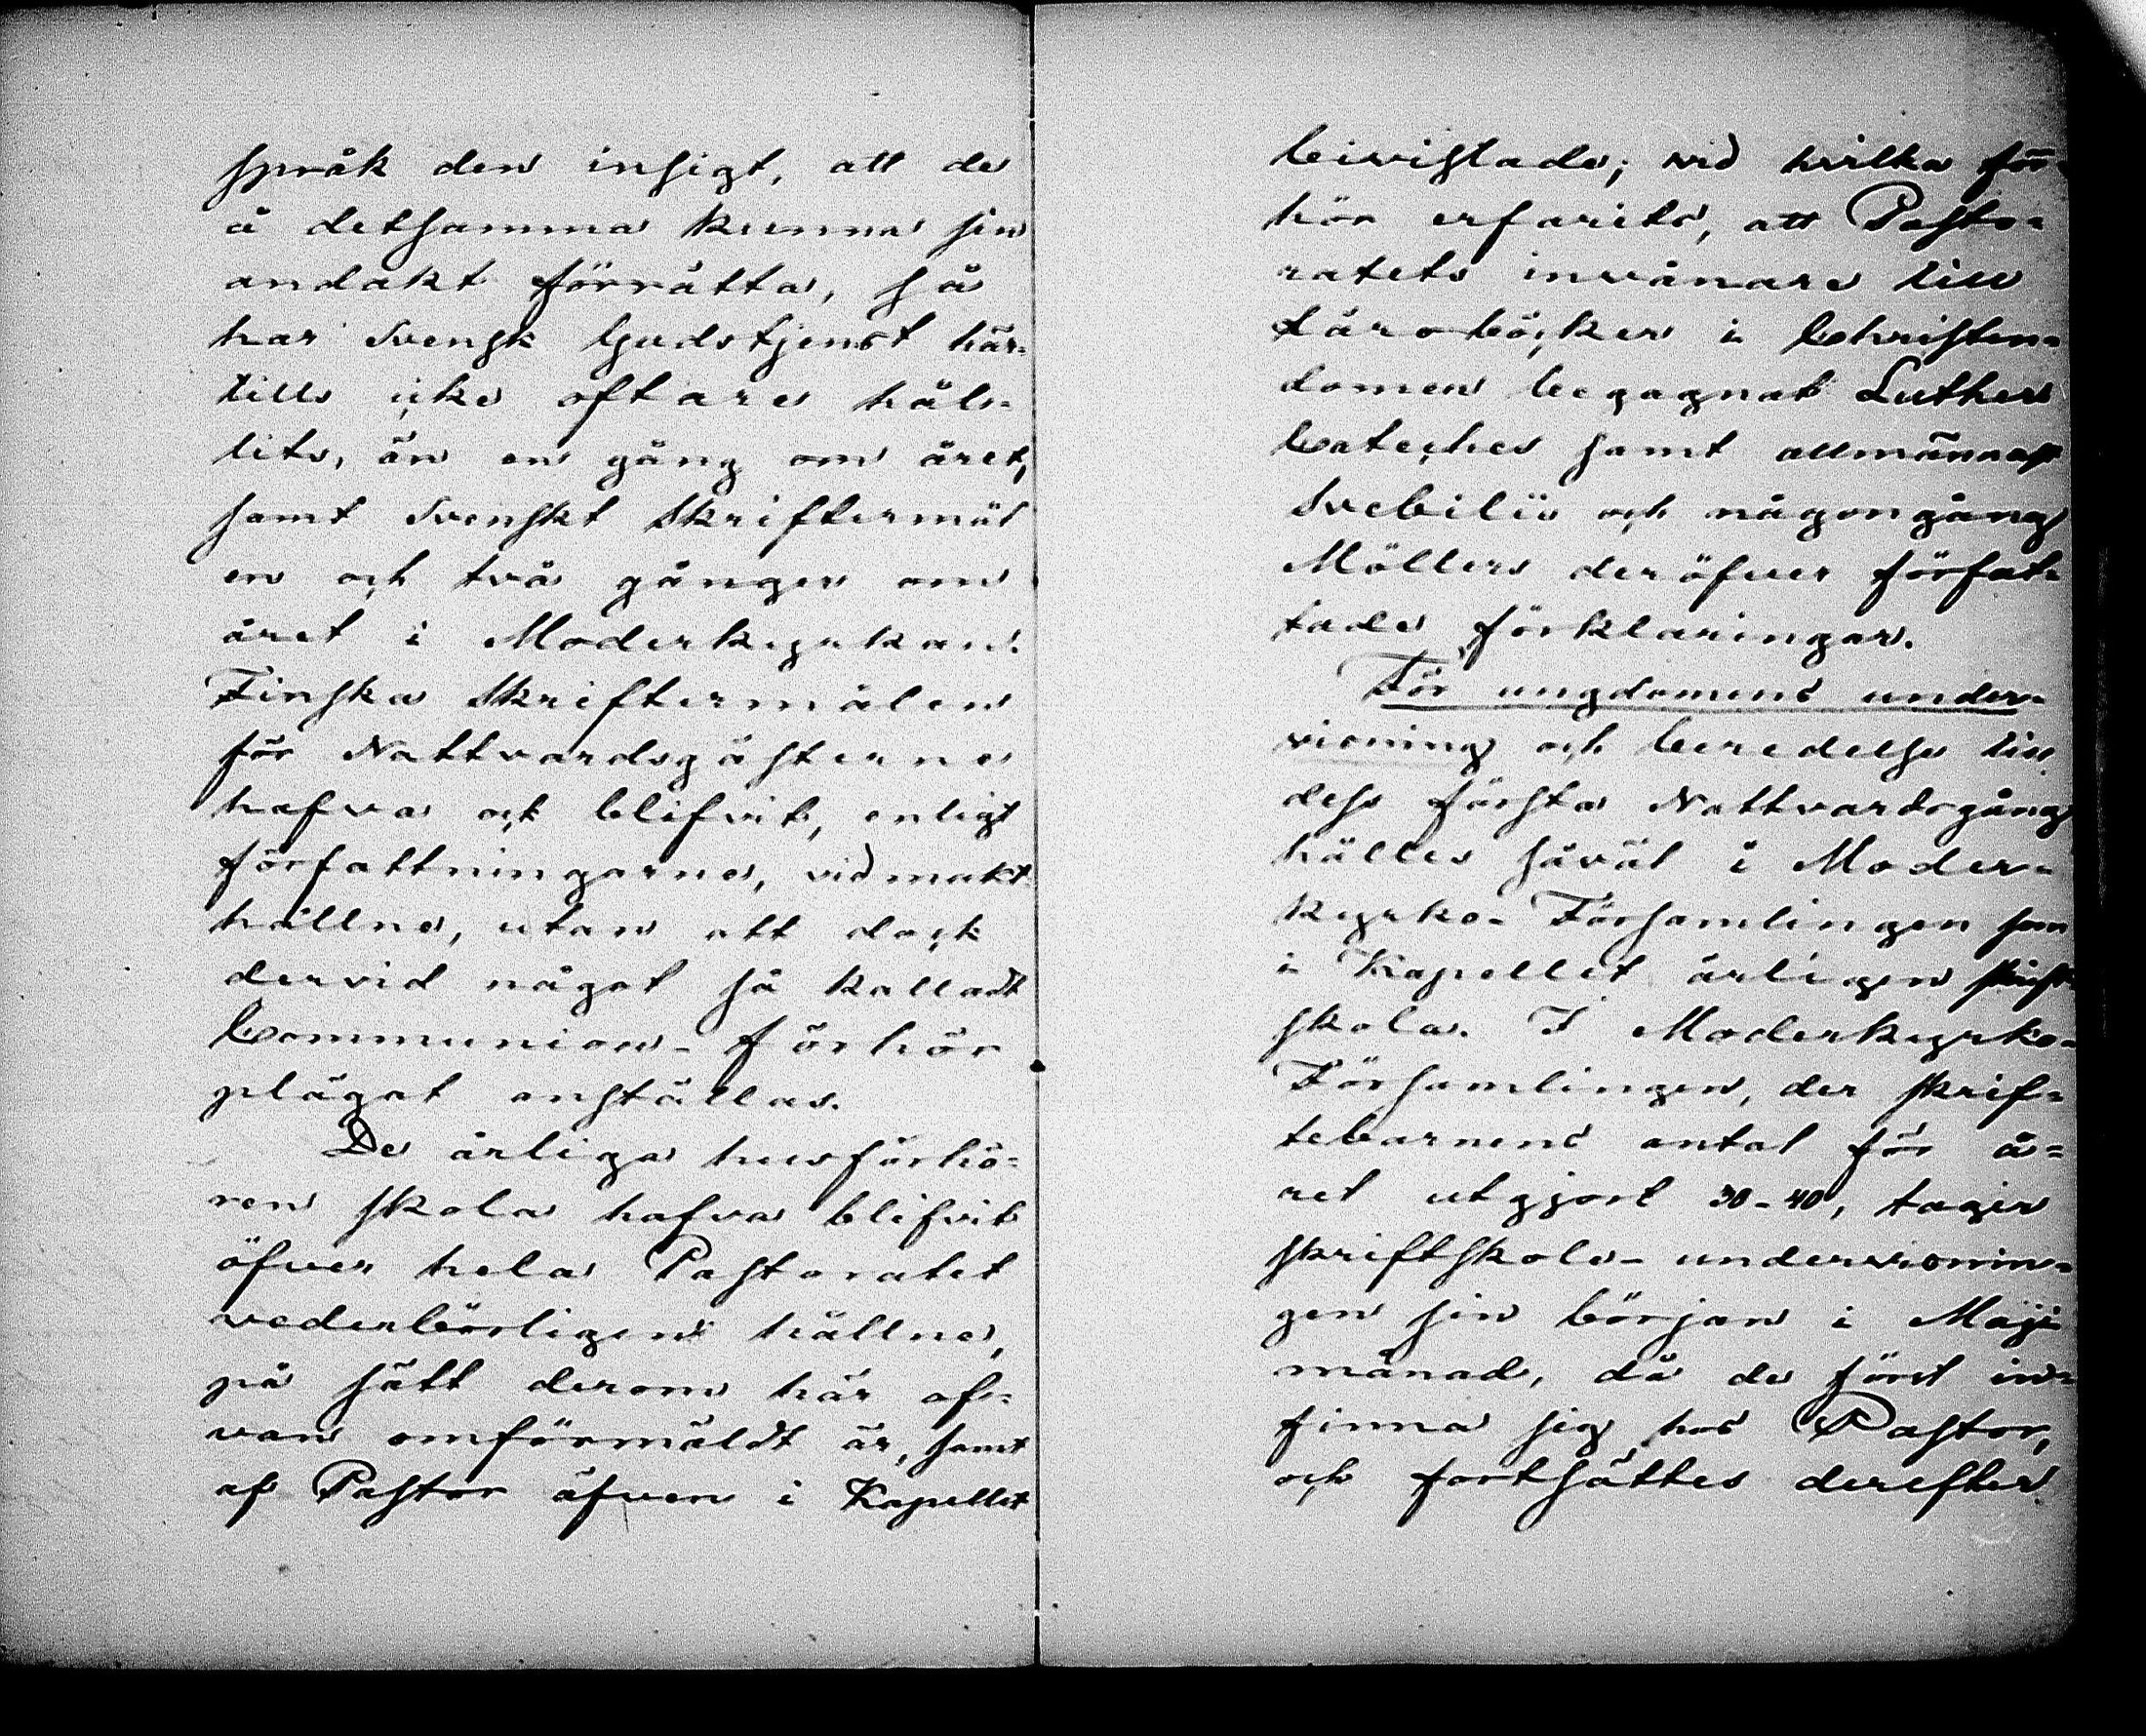 språk den insigt, att de
å detsamma kunna sin
andakt förrätta, så
har Svensk Gudstjenst här-
tills icke oftare håls-
lits, än en gång om året,
samt Svenskt Skriftermål
en och två gånger om
året i Moderkyrkan.
Finska Skriftermålen
för Nattvardsgästerne
hafva ock blifvit, enligt
författningarne, vidmakt
hållne, utan att dock
dervid något så kalladt
Communion-förhör
plägat anställas.
De årliga husförhö-
ren skola hafva blifvit
öfver hela Pastoratet
vederbörligen hållne,
på sätt derom här of-
van omförmäldt är, samt
af Pastor äfven i Kapellet
beivistade; vid hvilka för-
hör erfarits, att Pasto-
ratets invånare till
läroböcker i Christen-
domen begagnat Luthers
Cateches samt allmännast
Svebilii och någon gång
Möllers deröfver förfat-
tade förklaringar.
För ungdomens under-
visning och beredelse till
dess första Nattvardsgång
hålles såväl i Moder-
kyrko-Församlingen som
i Kapellet årligen skrift-
skola. I Moderkyrko-
Församlingen, der skrif-
tebarnens antal för å-
ret utgjort 30-40, tager
skriftskole-undervisnin-
gen sin början i Maji
månad, då de först in-
finna sig hos Pastor,
och fortsättes derefter